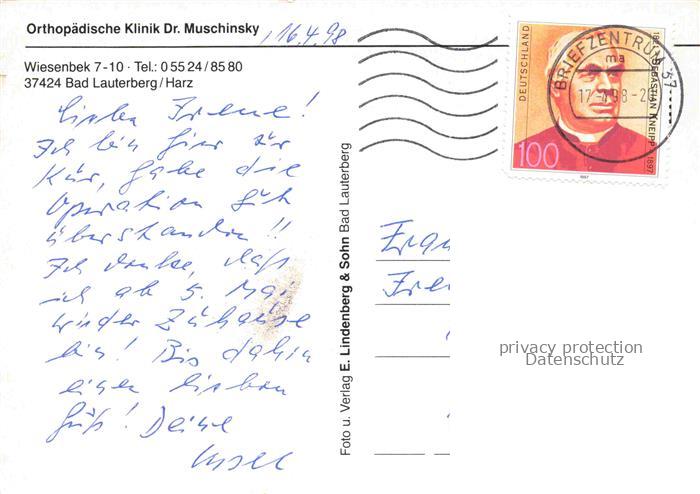 Orthopädische Klinik Dr. Muschinsky
, 16.4.98
Wiesenbek 7-10 · Tel.: 0 55 24 / 85 80
37424 Bad Lauterberg / Harz
Ich bin hier zur
Kur, habe die
Operation gut
überstanden!!
Ich denke, daß
ich ab 5. Mai
wieder Zuhause
bin! Bis dahin
einen lieben
Gruß! Deine
Foto u. Verlag E. Lindenberg & Sohn Bad Lauterberg
DEUTSCHLAND
SEBASTIAN KNEIPP 1897
100
1997
BRIEFZENTRUM 37
ma
Frau
privacy protection
Datenschutz